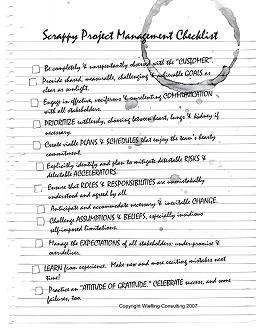 Scrappy Project Management Checklist
Be completely & unrepentantly obsessed with the "CUSTOMER".
Provide shared, measurable, challenging & achievable GOALS as
clear as sunlight.
Engage in effective, vociferous & unrelenting COMMUNICATION
with all stakeholders.
PRIORITIZE ruthlessly, choosing between heart, lungs & kidney if
necessary.
Create viable PLANS & SCHEDULES that enjoy the team's hearty
commitment.
Explicitly identify and plan to mitigate detestable RISKS &
delectable ACCELERATORS.
Ensure that ROLES & RESPONSIBILITIES are unmistakably
understood and agreed by all.
Anticipate and accommodate necessary & inevitable CHANGE.
Challenge ASSUMPTIONS & BELIEFS, especially insidious
self-imposed limitations.
Manage the EXPECTATIONS of all stakeholders: under-promise &
over-deliver.
LEARN from experience. Make new and more exciting mistakes next
time!
Practice an "ATTITUDE OF GRATITUDE." CELEBRATE success, and some
failures, too.
Copyright Wiefling Consulting 2007